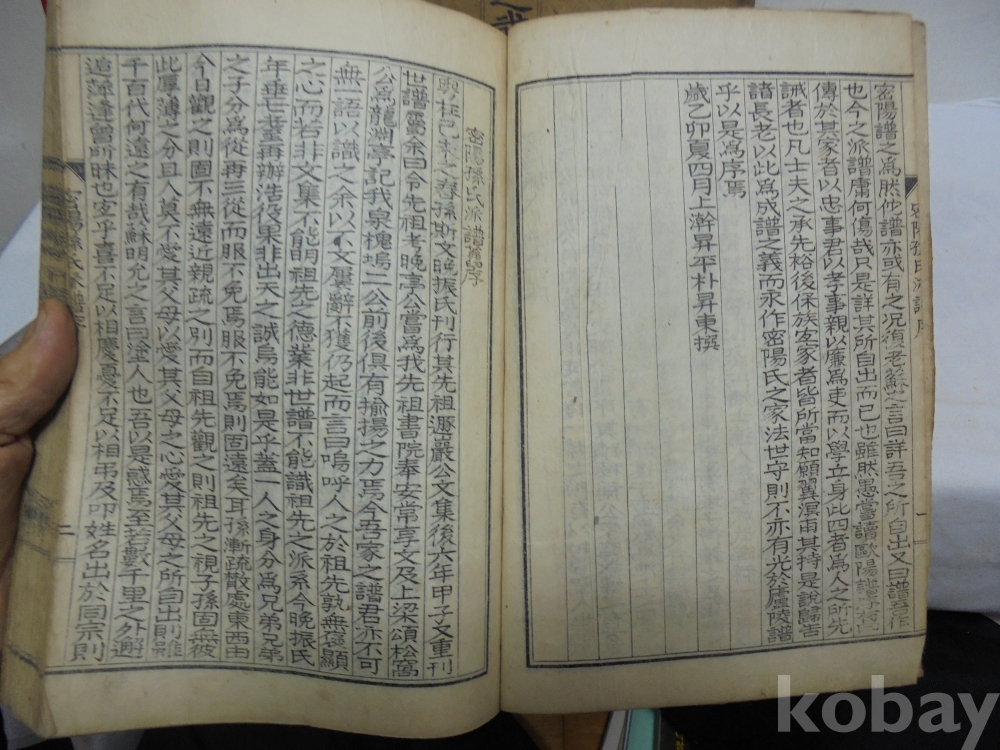 密陽譜之爲然他譜亦或有之況復老蘇之言曰詳吾之所自出又曰譜吾作
也今之派譜庸何傷哉只是詳其所自出而已也雖然愚嘗讀歐陽譜
傳於其家者以忠事君以孝事親以廉爲吏而以學立身此四者爲人之所先
誡者也凡士夫之承先裕後保族宜家者皆所當知願翼溟甫其持是說歸告
諸長老以此爲成譜之義而永作密陽氏之家法世守則不亦有光於廬陵譜
乎以是爲序焉
歲乙卯夏四月上澣昇平朴昇東撰
密陽孫氏派譜序
一
密陽孫氏派譜舊序
粤在己未之春孫斯文晩振氏刊行其先祖遯巖公文集後六年甲子又重刊
世譜屬余曰令先祖考晩亭公嘗爲我先祖書院奉安常享文及上梁頌松窩
公爲龍淵亭記我泉槐塢二公前後俱有揄揚之力焉今吾家之譜君亦不可
無一語以識之余以不文屢辭不獲仍起而言曰嗚呼人之於祖先孰無寤顯
之心而若非文集不能明祖先之德業非世譜不能識祖先之派系今晩振氏
年垂七耋再辦浩役果非出天之誠烏能如是乎蓋一人之身分爲兄弟兄弟
之子分爲從再三從而服不免焉服不免焉則固遠矣耳孫漸疏散處東西由
今日觀之則固不無遠近親疏之別而自祖先觀之則祖先之視子孫固無彼
此厚薄之分且人莫不愛其父母以愛其父母之心愛其父母之所自出則雖
千百代何遠之有哉蘇明允之言曰塗人也吾以是惑焉至若數千里之外邂
逅萍逢曾所昧也宜乎喜不足以相慶憂不足以相弔及叩姓名出於同宗則
二